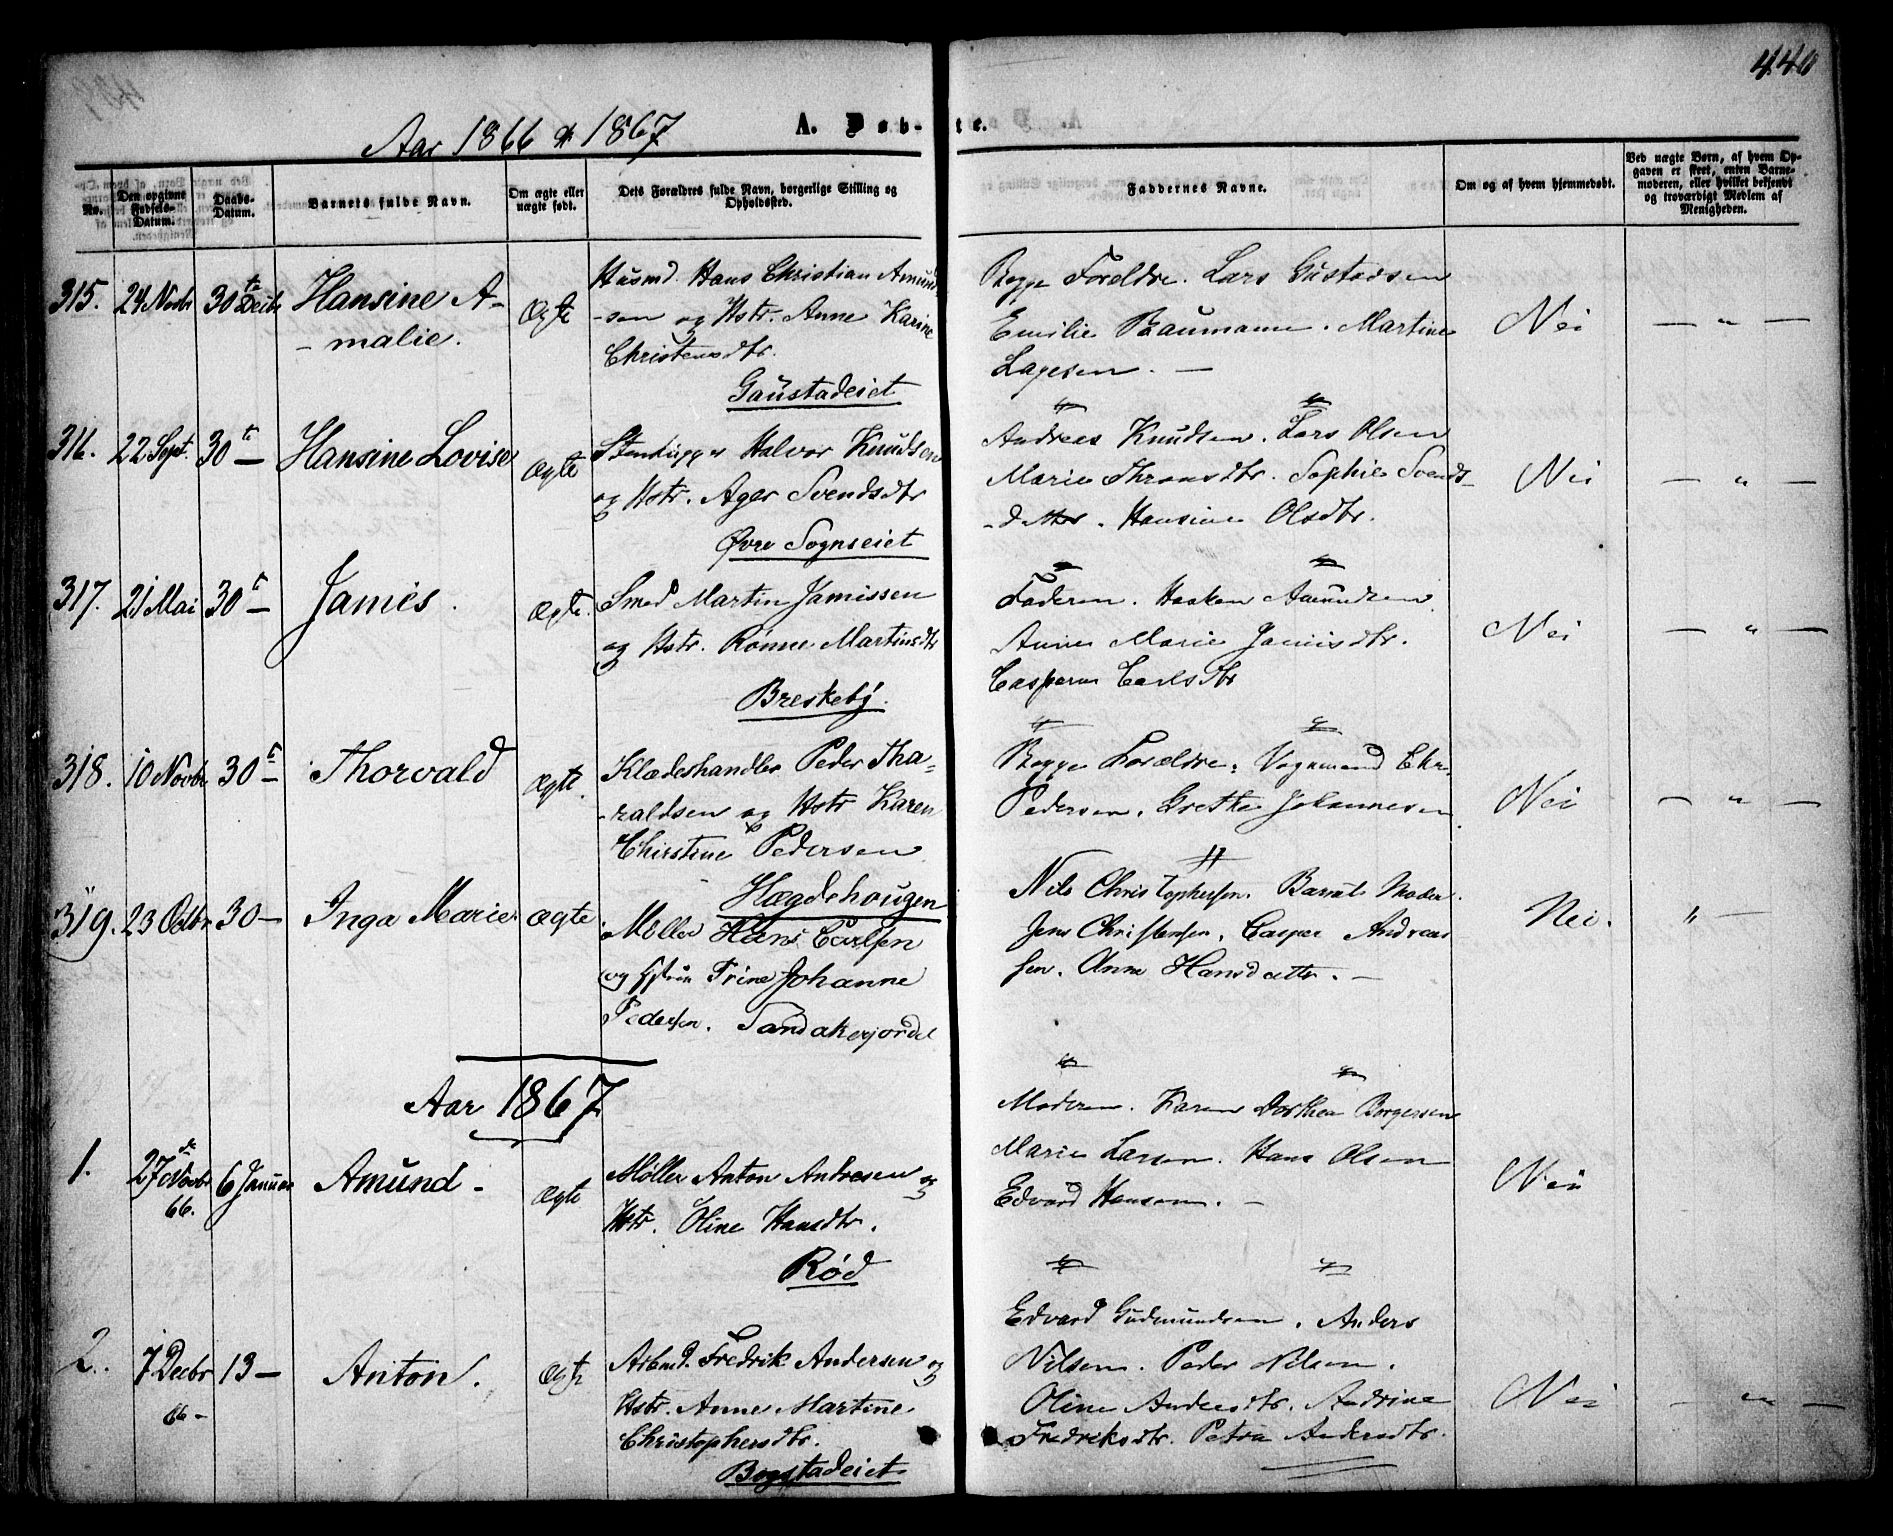 440
Aar 1866 & 1867
A. Døb-te.
No.
Den opgivne Fødsels-Datum.
Daabs-Datum.
Barnets fulde Navn.
Om ægte eller uægte født.
Dets Forældres fulde Navn, borgerlige Stilling og Opholdssted.
Faddernes Navne.
Om og af hvem hjemmedøbt.
Ved uægte Børn, af hvem Opgaven er skeet, enten Barnemoderen, eller hvilket bekjendt og troværdigt Medlem af Menigheden.
315. 24 Novbr 30te Decbr Hansine A-
-malie.
Ægte
Husmd. Hans Christian Amund
-sen og Hstr. Anne Karine
Christensdtr.
Gaustadeiet
Begge Foreldre. Lars Gustavsen
Emilie Baumann. Martine
Lagesen. —
Nei — " —
316. 22 Sept. 30te — Hansine Lovise
Ægte
Stenhugger Halvor Knudsen
og Hstr. Ager Svendsdtr
Øvre Sognseiet
Andreas Knudsen. Lars Olsen
Marie Thronsdtr. Sophie Svends-
-datter. Hansine Olsdtr.
Nei — " —
317. 21 Mai 30t — James.
Ægte.
Smed Martin Jamissen
og Hstr. Rønne Martinsdtr
Breskeby.
Faderen. Haaken Amundsen
Anne Marie Jamisdtr.
Casperne Carlsdtr
Nei — " —
318. 10 Novbr 30t — Thorvald
Ægte.
Klædeshandler Peder Tha-
-raldsen og Hstr Karen
Christine Pedersen
Hægdehougen
Begge Forældre. Vognmand Chr.
Pedersen. Grethe Johannesen.
Nei — " —
319. 23 Octbr 30 — Inga Marie
Ægte
Møller Hans Carlsen
og Hstru Trine Johanne
Pedersen. Sandakerjordet
Nils Christophersen. Barnets Moder.
Jens Christensen. Casper Andreas
sen. Anne Hansdatter. —
Nei. " —
Aar 1867
1. 27de Novbr 66. 6 Januar Amund —
Ægte
Møller Anton Andresen og
Hstr. Oline Hansdtr.
Rød
Moderen. Karen Dorthea Borgersen
Marie Larsen. Hans Olsen
Edvard Hansen. —
Nei
2. 7 Decbr 66 — 13 — Anton.
Ægte
Arbmd. Fredrik Andersen og
Hstr. Anne Martine
Christophersdtr.
Bogstadeiet
Edvard Gudmundsen. Anders
Nilsen. Peder Nilsen.
Oline Andersdtr. Andrine
Fredriksdtr. Petra Andersdtr.
Nei — " —